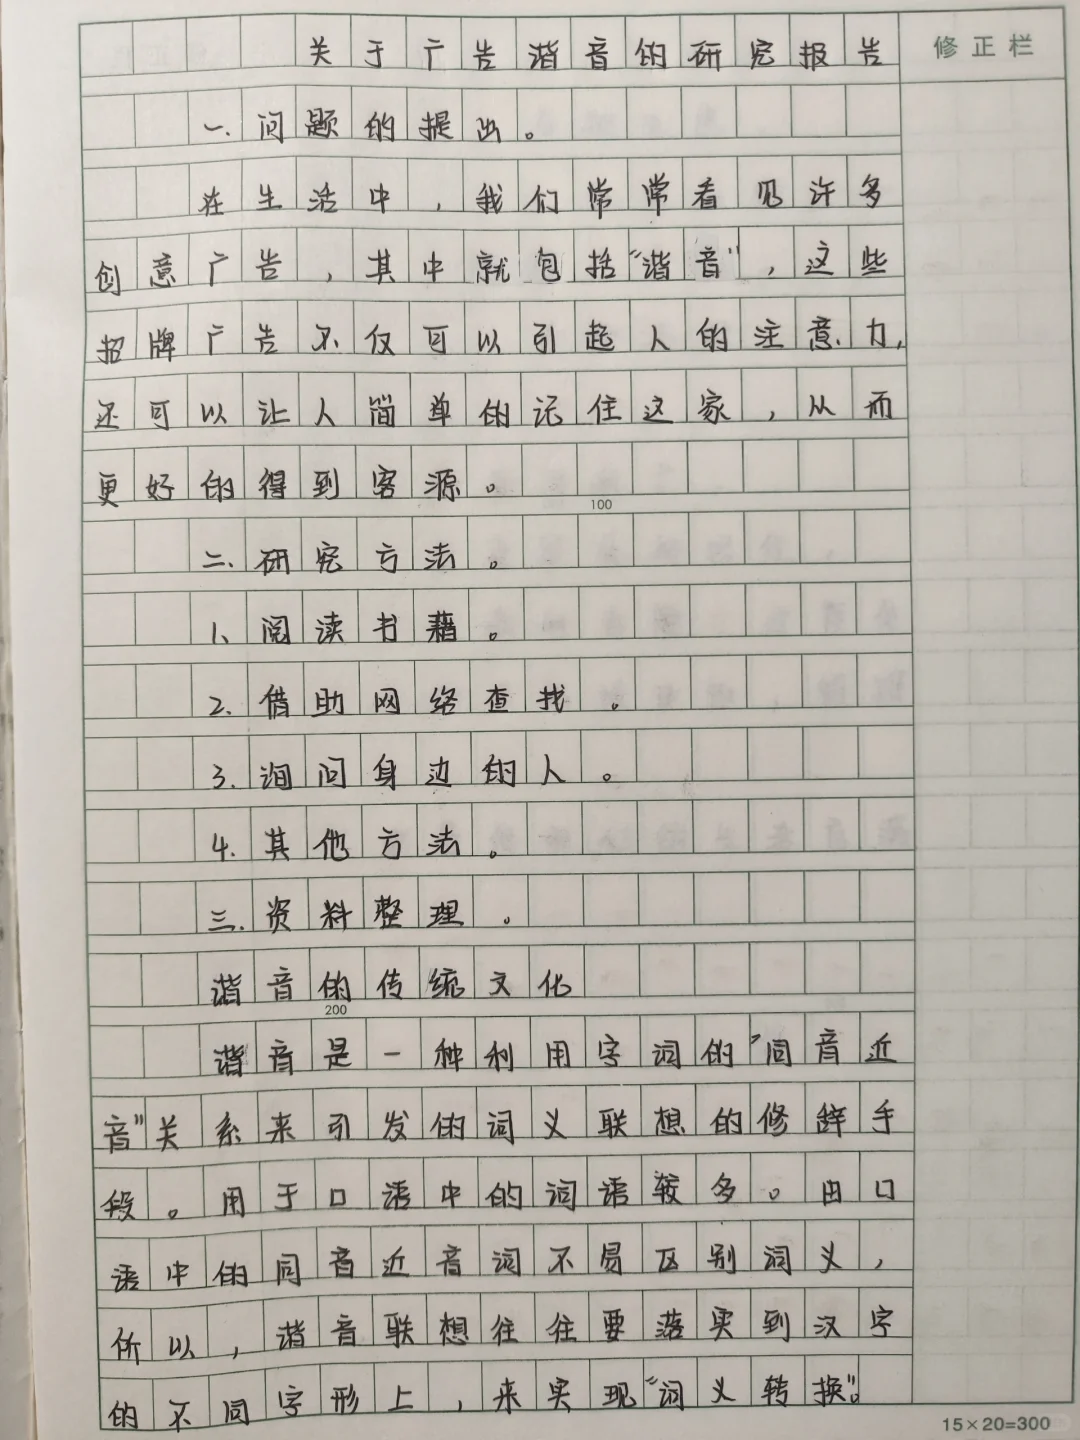 关于广告谐音的研究报告
修正栏
一.问题的提出。
在生活中,我们常常看见许多
创意广告,其中就包括“谐音”,这些
招牌广告不仅可以引起人的注意力,
还可以让人简单的记住这家,从而
更好的得到客源。
100
二.研究方法。
1、阅读书藉。
2.借助网络查找。
3.询问身边的人。
4.其他方法。
三.资料整理。
谐音的传统文化
200
谐音是一种利用字词的“同音近
音”关系来引发的词义联想的修辞手
段。用于口语中的词语较多。由口
语中的同音近音词不易区别词义,
所以,谐音联想往往要落实到汉字
的不同字形上,来实现“词义转换”。
15×20=300